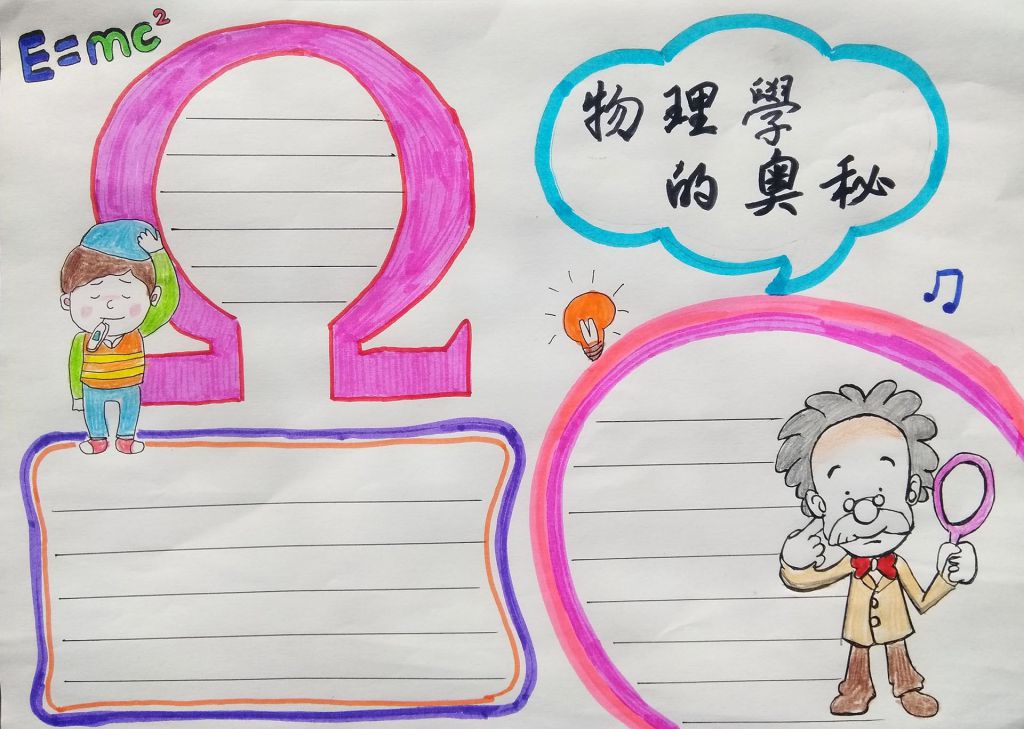 E=mc²
Ω
物理學
的奥秘